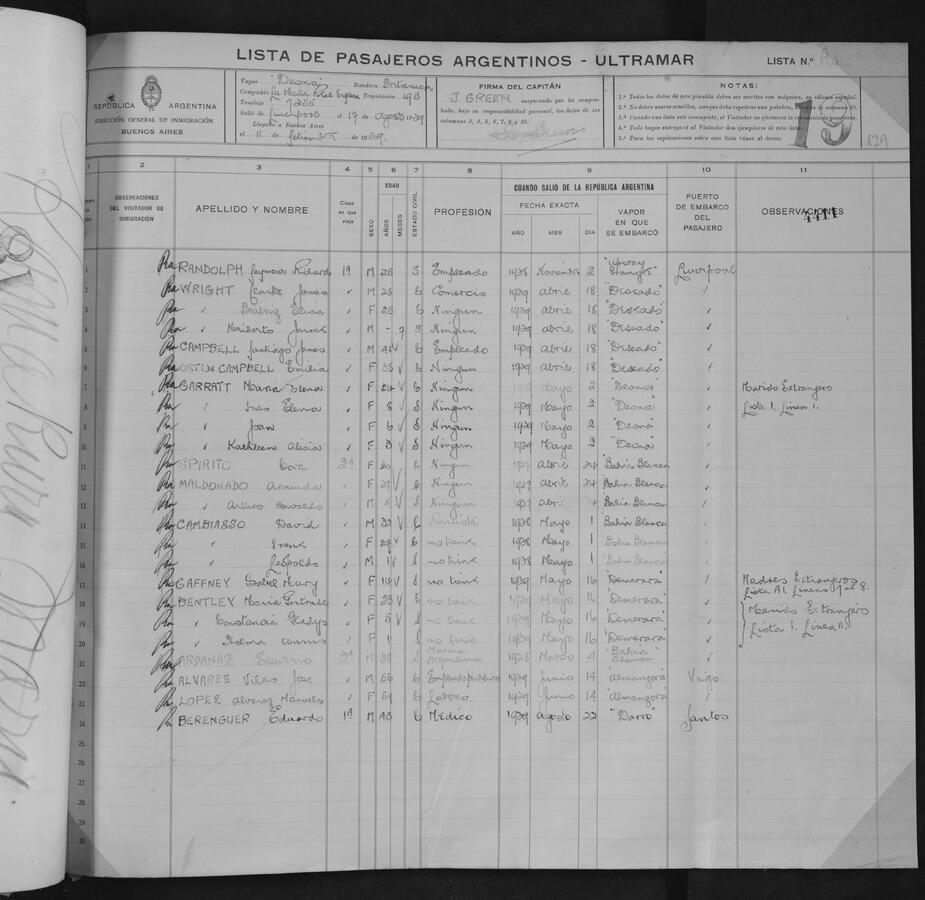 LISTA DE PASAJEROS ARGENTINOS - ULTRAMAR
LISTA N.º
REPÚBLICA ARGENTINA
DIRECCIÓN GENERAL DE INMIGRACIÓN
BUENOS AIRES
Vapor "Deona" Bandera Britanica
Compañía La Mala Real Inglesa Tripulación 190
Tonelaje
Salió de Liverpool el 17 de agosto 1929
Llegada a Buenos Aires
el 11 de setiembre de 1929.
FIRMA DEL CAPITÁN
J. GREEN asegurando que ha comprobado, bajo su responsabilidad personal, los datos de las columnas 3, 4, 5, 6, 7, 8, 9 y 10.
NOTAS:
1.ª Todos los datos de esta planilla deben ser escritos con máquina, en idioma español.
2.ª No deben usarse comillas, aunque deba repetirse una palabra, columnas 9, 10.
3.ª Cuando una lista esté incompleta, el Visitador no efectuará la recepción de pasajeros.
4.ª Todo buque entregará al Visitador dos ejemplares de esta lista.
5.ª Para las explicaciones sobre esta lista véase al dorso.
19
129
1 2 3 4 5 6 7 8 9 10 11
OBSERVACIONES DEL VISITADOR DE INMIGRACIÓN
APELLIDO Y NOMBRE
Clase en que viaja
SEXO
EDAD
AÑOS
MESES
ESTADO CIVIL
PROFESIÓN
CUANDO SALIÓ DE LA REPÚBLICA ARGENTINA
FECHA EXACTA
AÑO MES DÍA
VAPOR EN QUE SE EMBARCÓ
PUERTO DE EMBARCO DEL PASAJERO
OBSERVACIONES
1 RANDOLPH Seymour Richard 1ª M 26 S Empleado 1928 Noviembre 2 Liverpool
2 WRIGHT James M 28 C Comercio 1929 Abril 18 "Deseado"
3 " Beatriz Elisa F 25 C Ningun 1929 Abril 18 "Deseado"
4 " Heriberto M - 7 S Ningun 1929 Abril 18 "Deseado"
5 CAMPBELL Santiago James M C Empleado 1929 Abril 18 "Deseado"
6 ORTI DE CAMPBELL Emilia F 35 C Ningun 1929 Abril 18 "Deseado"
7 BARRATT Maria Elena F C Ningun 1929 Mayo 2 "Deona" Marido Extranjero
8 " Ines Elena F 8 S Ningun 1929 Mayo 2 "Deona" Lista 1. Linea 1.
9 " Joan F 6 S Ningun 1929 Mayo 2 "Deona"
10 " Kathleen Alicia F 3 S Ningun 1929 Mayo 2 "Deona"
11 SPIRITO 2ª F C Ningun Abril 24 "Bahia Blanca"
12 MALDONADO Arminda F 27 C Ningun Abril 24 "Bahia Blanca"
13 " Arturo M S Ningun Abril 24 "Bahia Blanca"
14 CAMBIASSO David M C 1928 Mayo 1 "Bahia Blanca"
15 " Irene F 29 C no tiene 1928 Mayo 1 "Bahia Blanca"
16 " Leopoldo M 1 S no tiene 1928 Mayo 1 "Bahia Blanca"
17 GAFFNEY Isabel Mary F 14 S no tiene 1929 Mayo 16 "Demerara" Madres Extranjeros
Lista A1. Lineas 7 al 8.
18 BENTLEY Maria Gertrude F 33 C no tiene 1929 Mayo 16 "Demerara" Marido Extranjero
19 " Constancia Gladys F 5 S no tiene 1929 Mayo 16 "Demerara" Lista 1. Linea 11.
20 " Thelma F 1 S no tiene 1929 Mayo 16 "Demerara"
21 ARDANAZ M S Marina Argentina 1928 Marzo 4 "Bahia Blanca"
22 ALVAREZ Vilas Jose M 56 C Empleado publico 1929 Junio 14 "Almanzora" Vigo
23 LOPEZ Alvarez Manuela F 59 C Labores 1929 Junio 14 "Almanzora"
24 BERENGUER Eduardo 1ª M 45 C Medico 1929 Agosto 22 "Darro" Santos
25
26
27
28
29
30